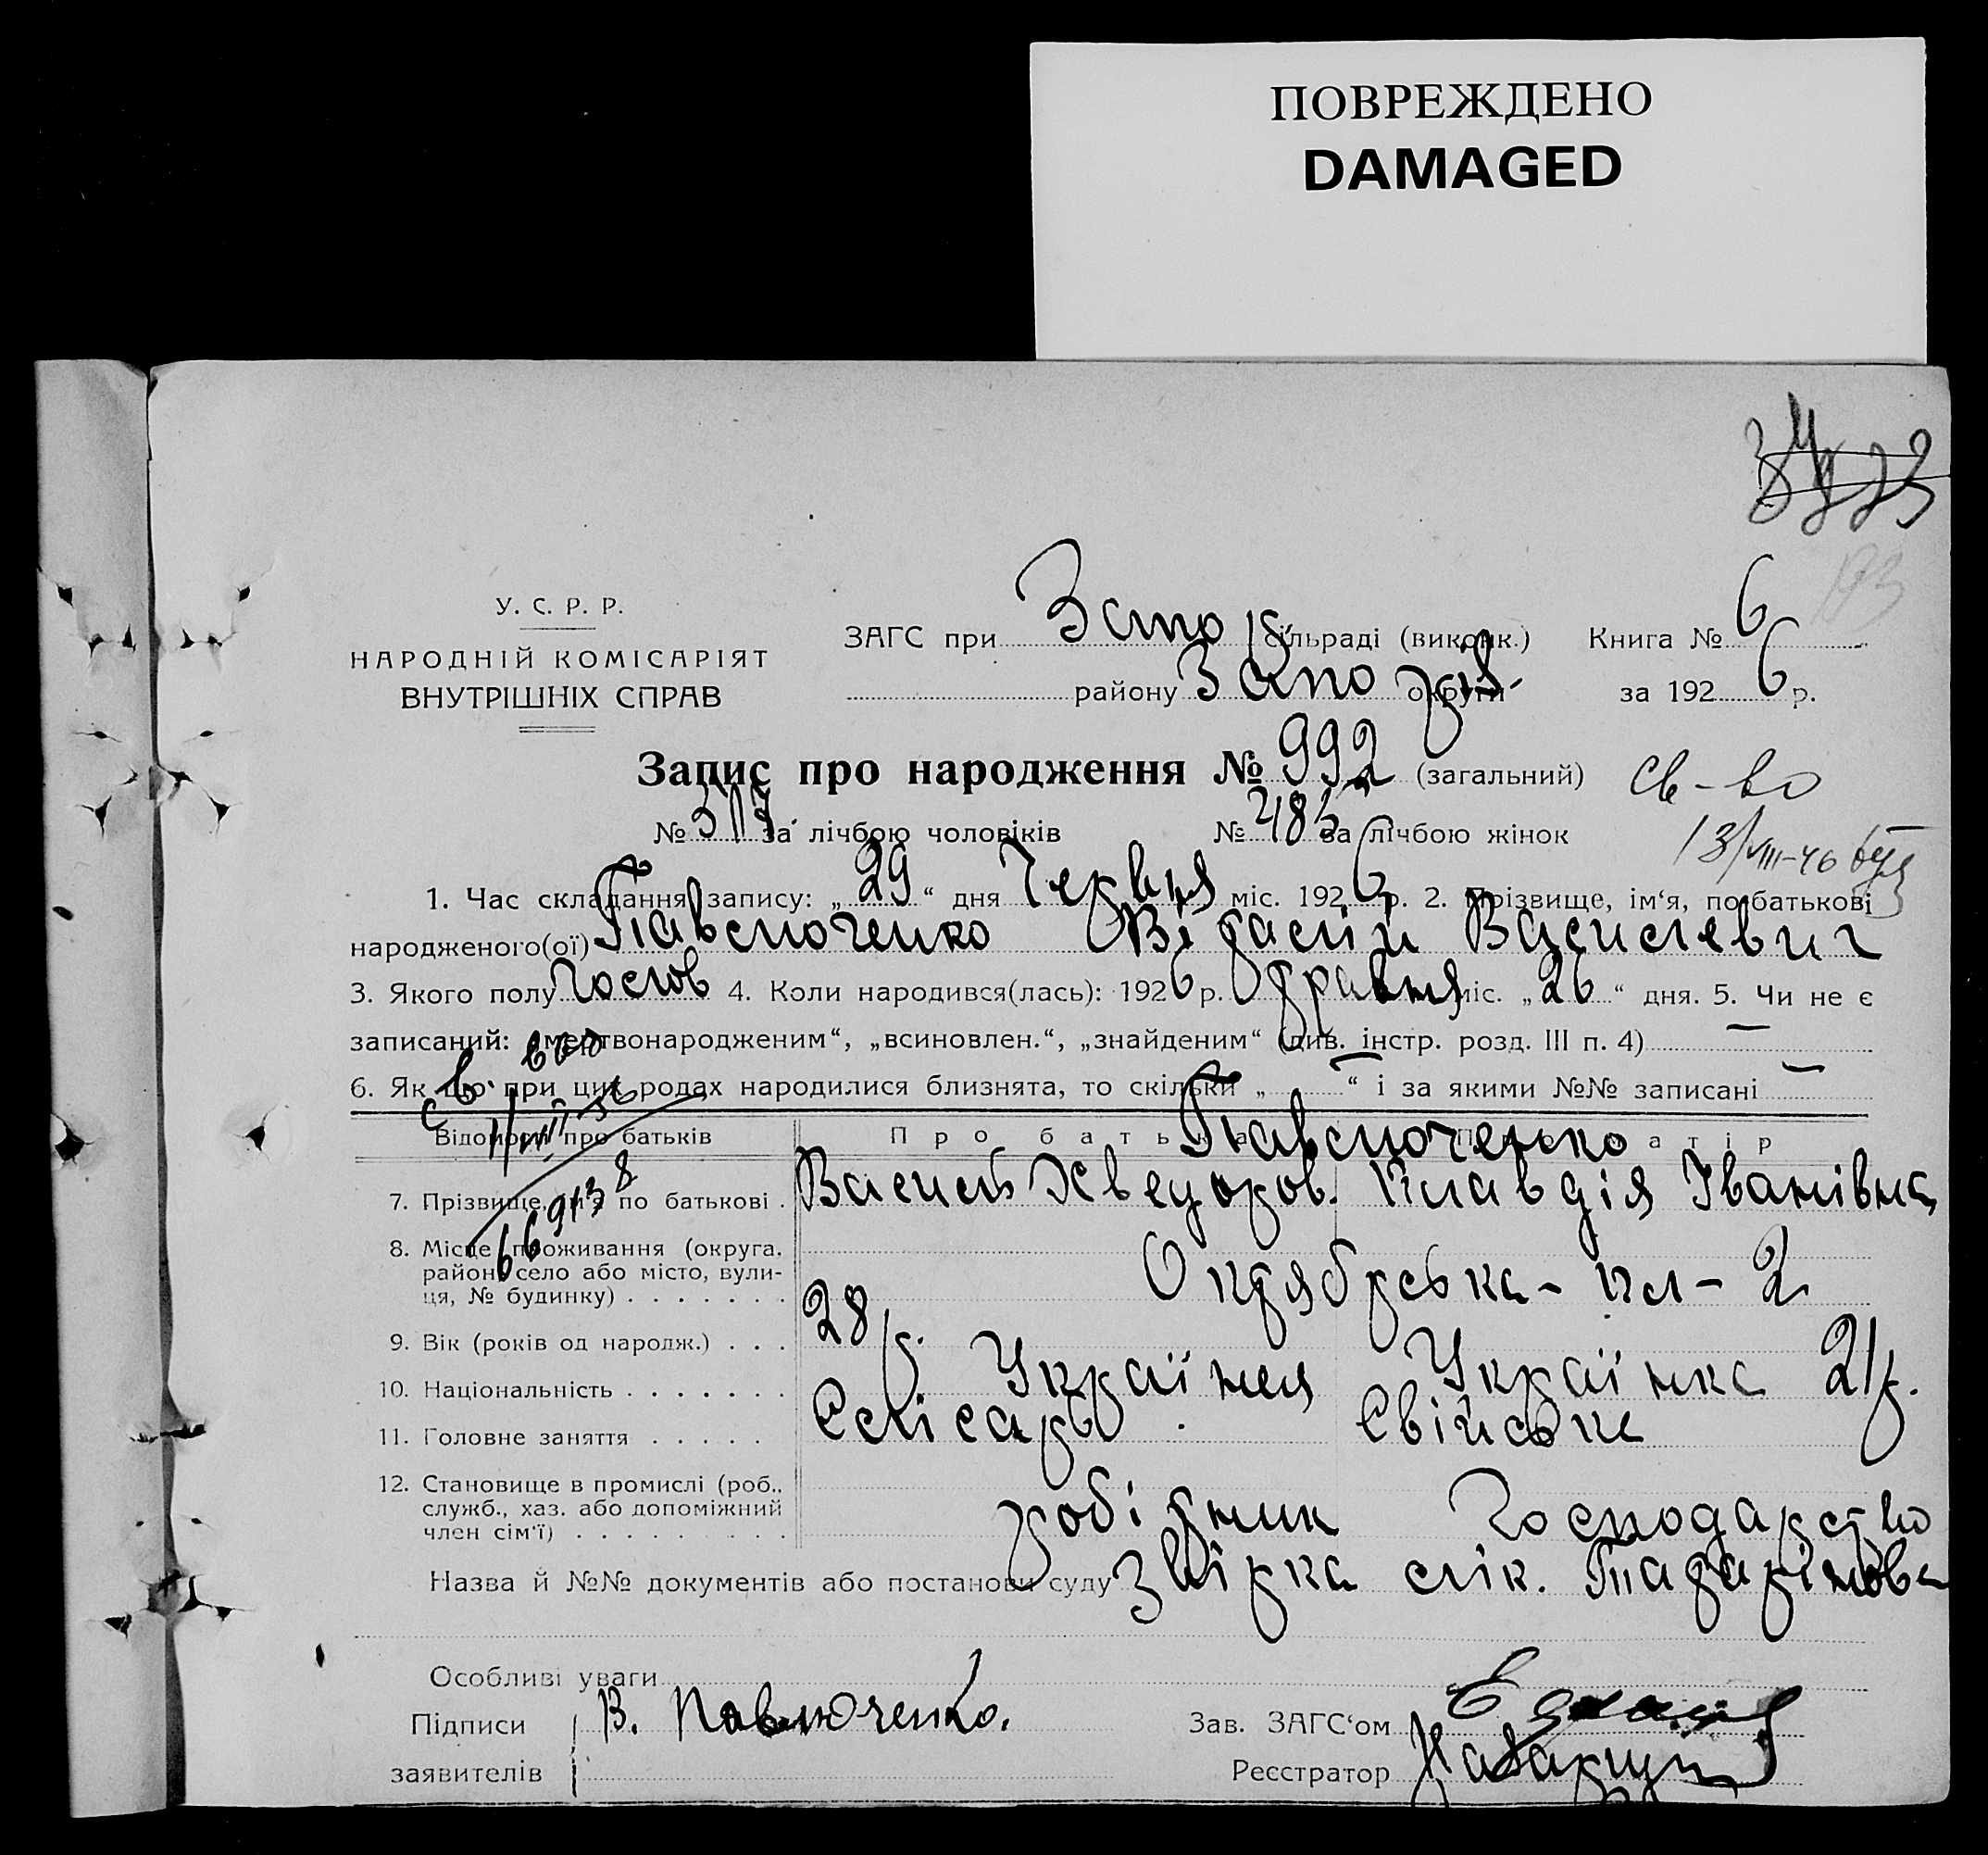 ПОВРЕЖДЕНО
DAMAGED
У. С. Р. Р.
НАРОДНІЙ КОМІСАРІЯТ
ВНУТРІШНІХ СПРАВ
ЗАГС при сільраді (виконк.) Книга № 6
району Запоріз. округи за 1926 р.
Запис про народження № 992 (загальний)
св-во
№ за лічбою чоловіків № 483 за лічбою жінок
13/VIII-46
1. Час складання запису: „29“ дня Червня міс. 1926 р. 2. Прізвище, ім‘я, по батькові
народженого(ої) Павлюченко Віталій Василевич
3. Якого полу Чолов 4. Коли народився(лась): 1926 р. травня міс. „26“ дня. 5. Чи не є
записаний: „мертвонародженим“, „всиновлен.“, „знайденим“ (див. інстр. розд. III п. 4) —
6. Як що при цих родах народилися близнята, то скільки „—“ і за якими №№ записані —
Відомості про батьків Про батька Про матір
Павлюченко
7. Прізвище, ім‘я по батькові . Василь Хведоров. Клавдія Іванівна
8. Місце проживання (округа,
район, село або місто, вули-
ця, № будинку) . . . . . . . Октябрська - пл - 2
9. Вік (років од народж.) . . . 28 р. 21 р.
10. Національність . . . . . . . Українец Українка
11. Головне заняття . . . . . Слісарь Свійське
12. Становище в промислі (роб.,
служб., хаз. або допоміжний
член сім‘ї) . . . . . . . . . робітник Господарство
Назва й №№ документів або постанови суду Звірка лік.
Особливі уваги
Підписи В. Павлюченко. Зав. ЗАГС‘ом
заявителів Реєстратор